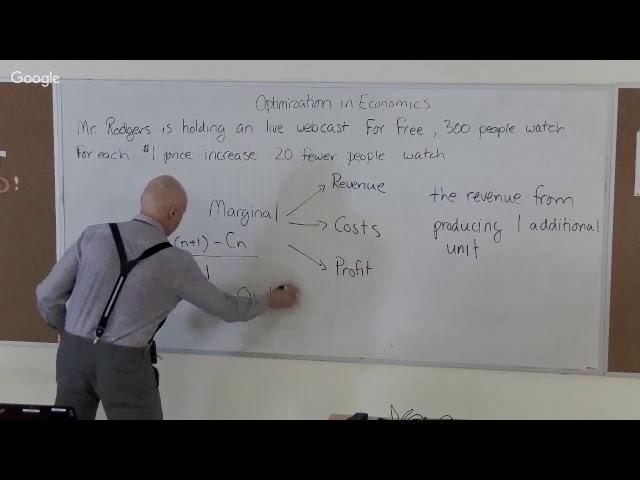 Google
Optimization in Economics
Mr. Rodgers is holding an live webcast For free, 300 people watch
For each $1 price increase 20 fewer people watch
Marginal
Revenue
Costs
Profit
the revenue from
producing 1 additional
unit
(n+1) - Cn
1